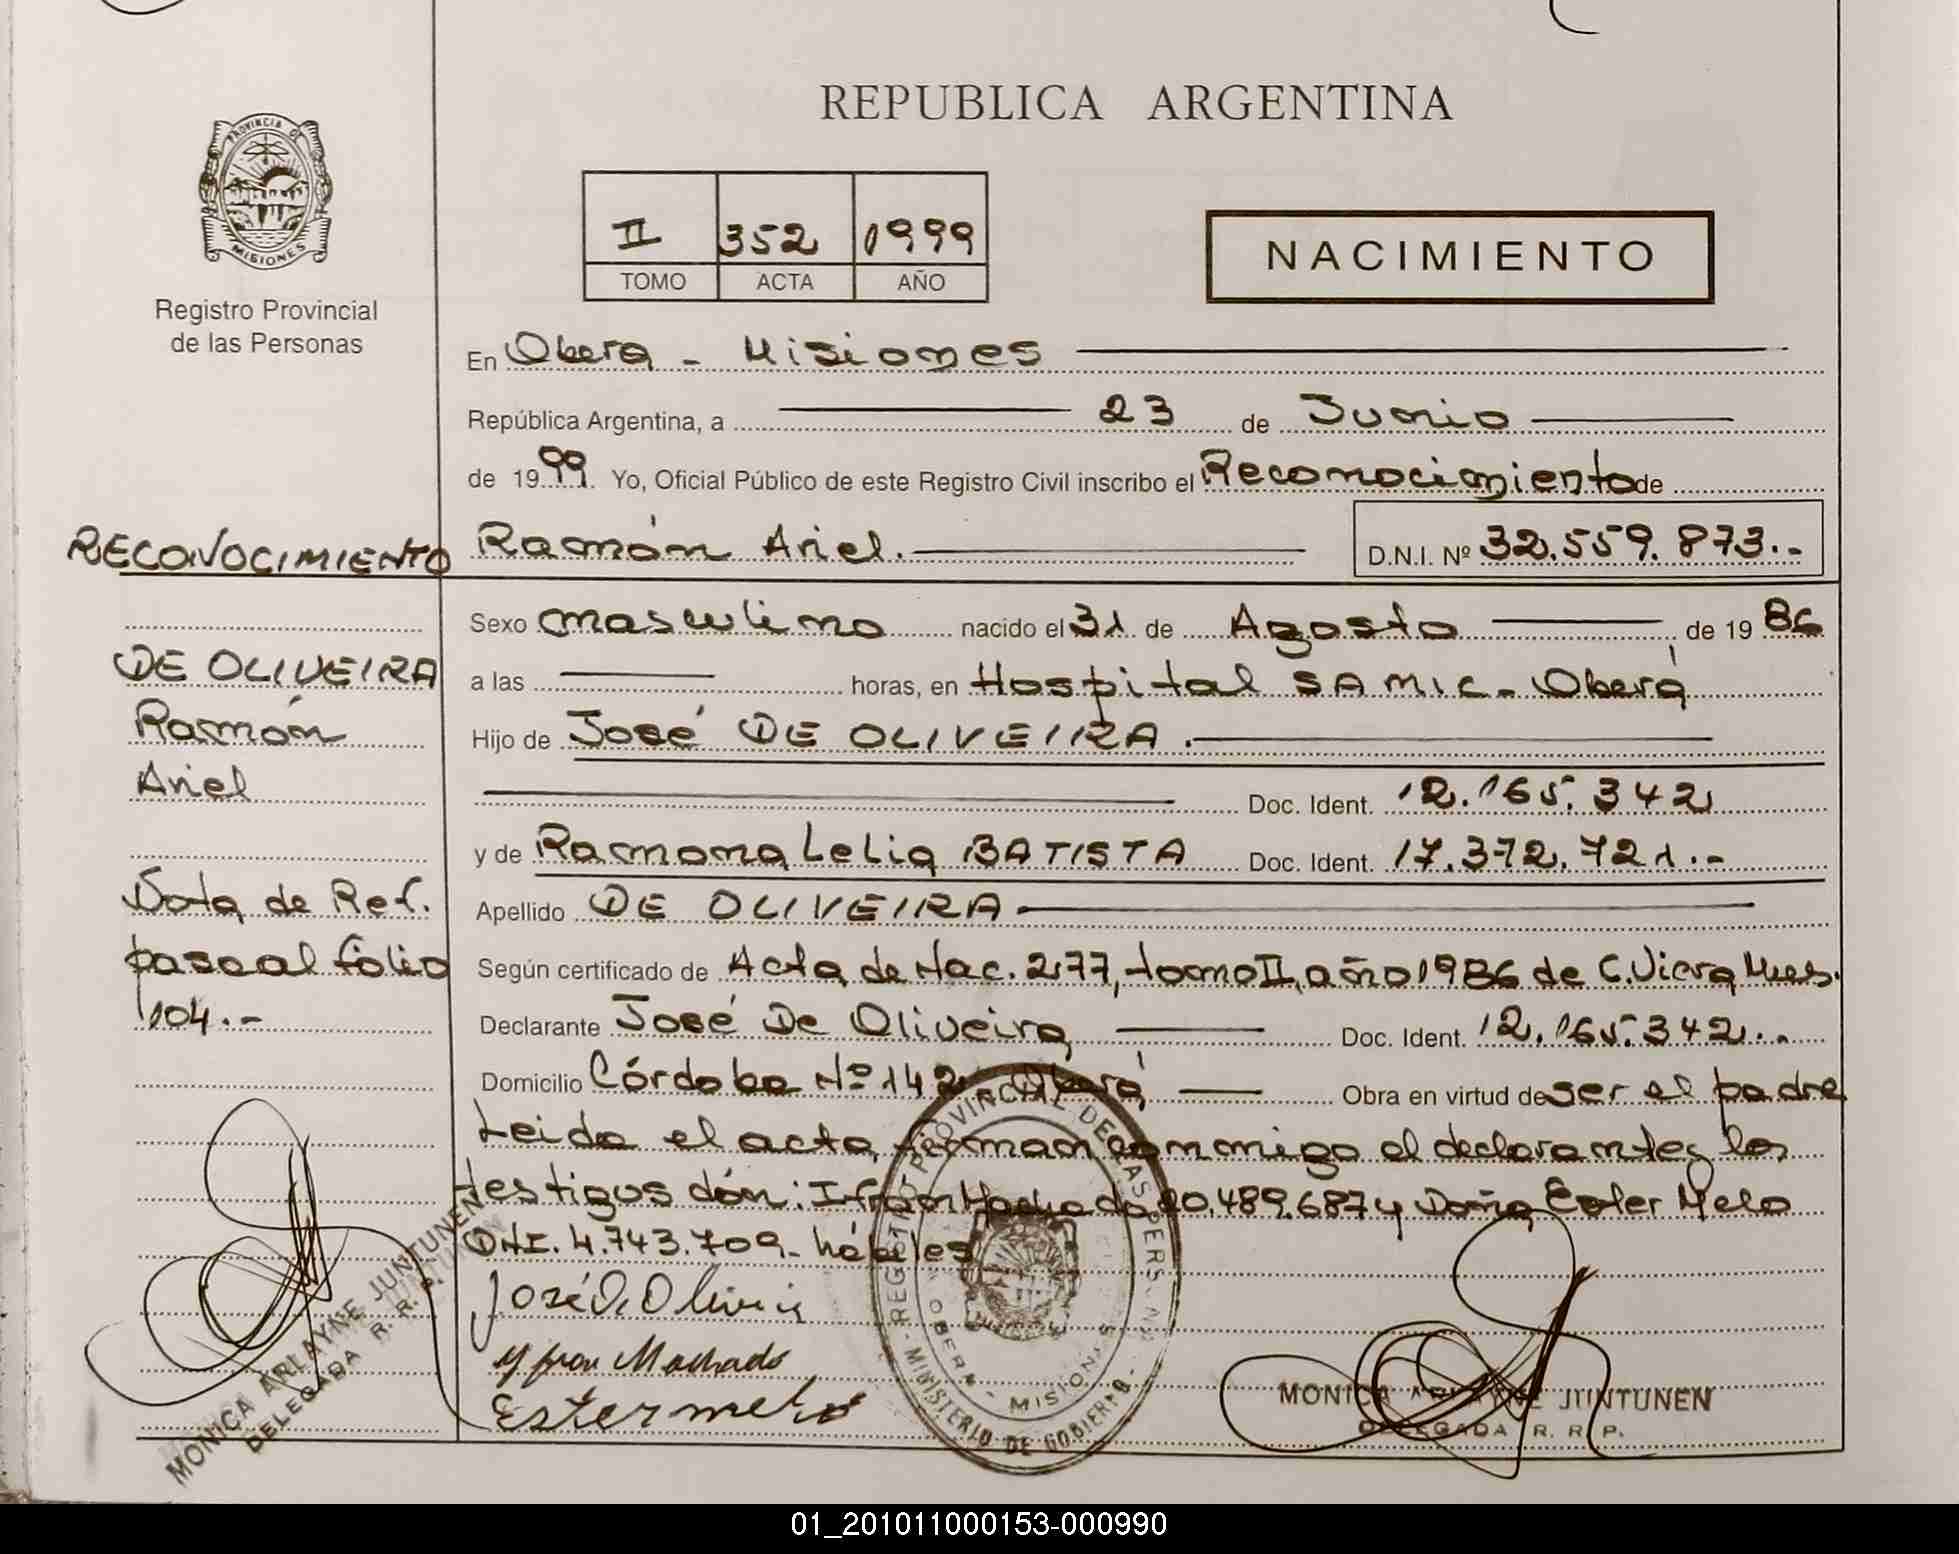 REPUBLICA ARGENTINA
PROVINCIA DE
MISIONES
Registro Provincial
de las Personas
II 352 1999
TOMO ACTA AÑO
NACIMIENTO
En Oberá - Misiones
República Argentina, a 23 de Junio
de 1999. Yo, Oficial Público de este Registro Civil inscribo el Reconocimiento de
RECONOCIMIENTO
Ramón Ariel. D.N.I. Nº 32.559.873.-
Sexo masculino nacido el 31 de Agosto de 1986
DE OLIVEIRA
Ramón
Ariel
a las horas, en Hospital SAMIC - Oberá
Hijo de José DE OLIVEIRA.
Doc. Ident. 12.165.342
y de Ramona Lelia BATISTA Doc. Ident. 17.372.721.-
Apellido DE OLIVEIRA
Nota de Ref.
pasa al folio
104.-
Según certificado de Acta de Nac. 277, tomo II, año 1986 de C. Viera Mnes.
Declarante José De Oliveira Doc. Ident. 12.165.342.-
Domicilio Córdoba Nº 142 Oberá Obra en virtud de ser el padre
Leida el acta, firman conmigo el declarante y los
testigos dón: Ifran Machado 20.489.687 y Doña Ester Melo
DNI. 4.743.709 - hábiles
José D. Oliveira
Yfran Machado
Ester melo
REGISTRO PROVINCIAL DE LAS PERSONAS
OBERA - MISIONES
MINISTERIO DE GOBIERNO
MONICA ARLAYNE JUNTUNEN
DELEGADA R. R. P.
MONICA ARLAYNE JUNTUNEN
DELEGADA R. R. P.
01_201011000153-000990